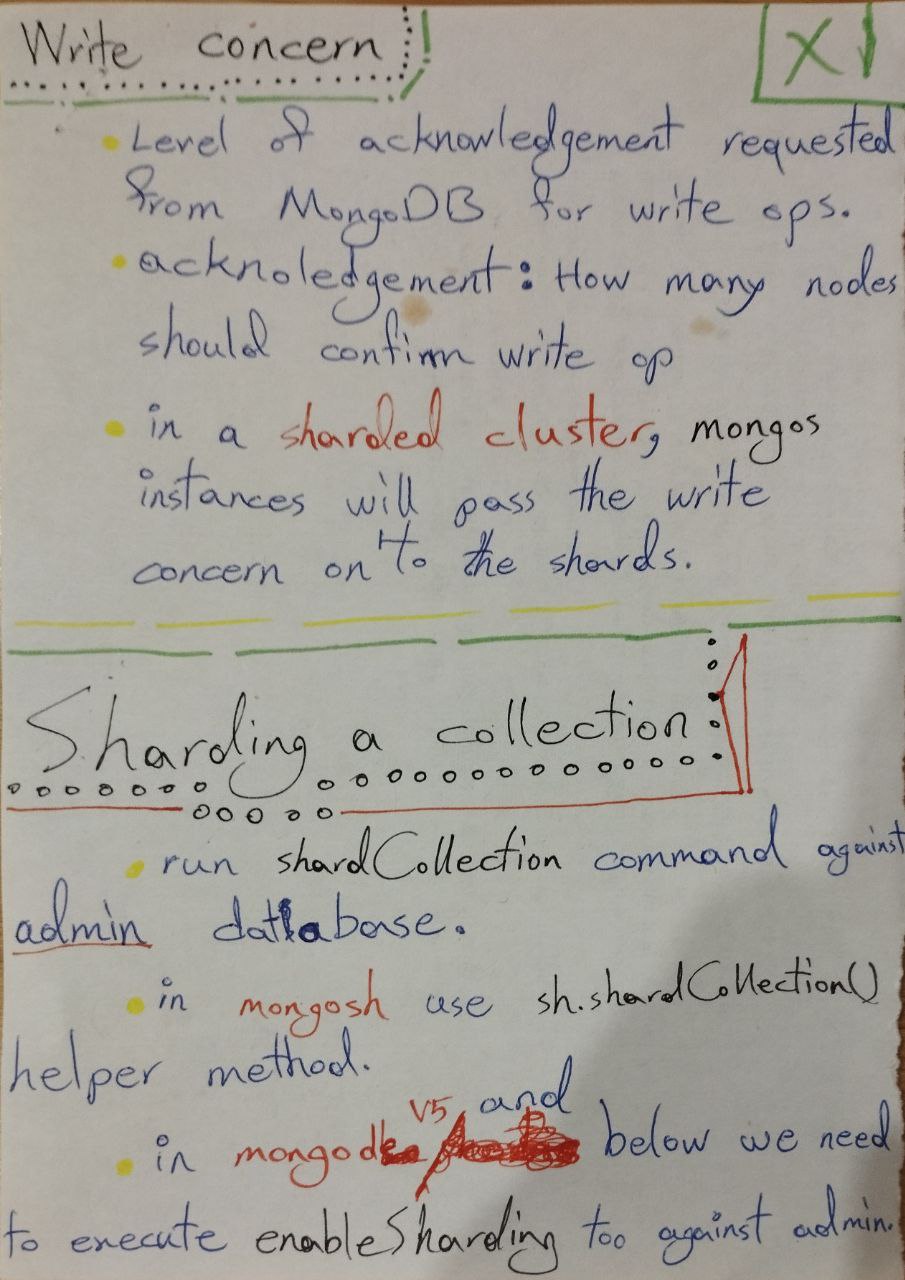 Write concern
X
• Level of acknowledgement requested
from MongoDB for write ops.
• acknoledgement: How many nodes
should confirm write op
• in a sharded cluster, mongos
instances will pass the write
concern on to the shards.
Sharding a collection
• run shardCollection command against
admin database.
• in mongosh use sh.shardCollection()
helper method.
• in mongodb v5 and below we need
to execute enableSharding too against admin.